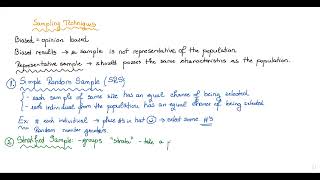 Sampling Techniques
Biased = opinion based
Biased results → a sample is not representative of the population
Representative sample → should posses the same characteristics as the population.
① Simple Random Sample (SRS)
- each sample of same size has an equal chance of being selected
- each individual from the population has an equal chance of being selected
Ex # each individual → place #s in hat → select some #s
Random number
② Stratified Sample: - groups "strata" - take a